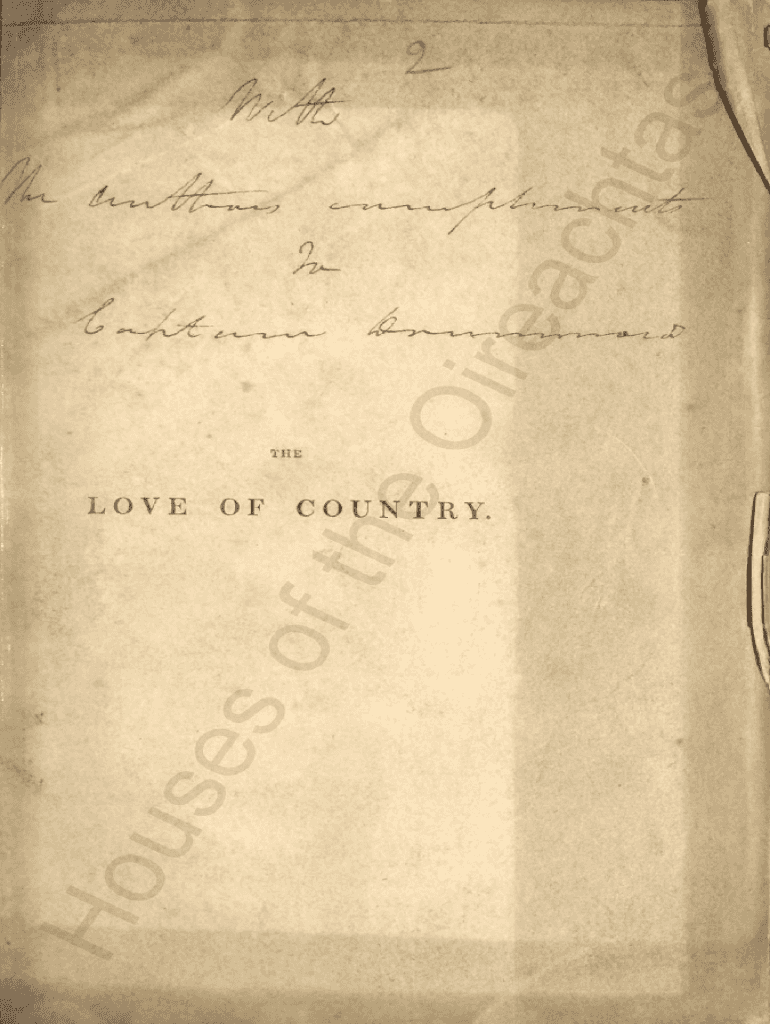 2
With
The authors compliments
To
Captain Drummond
THE
LOVE OF COUNTRY.
Houses of the Oireachtas